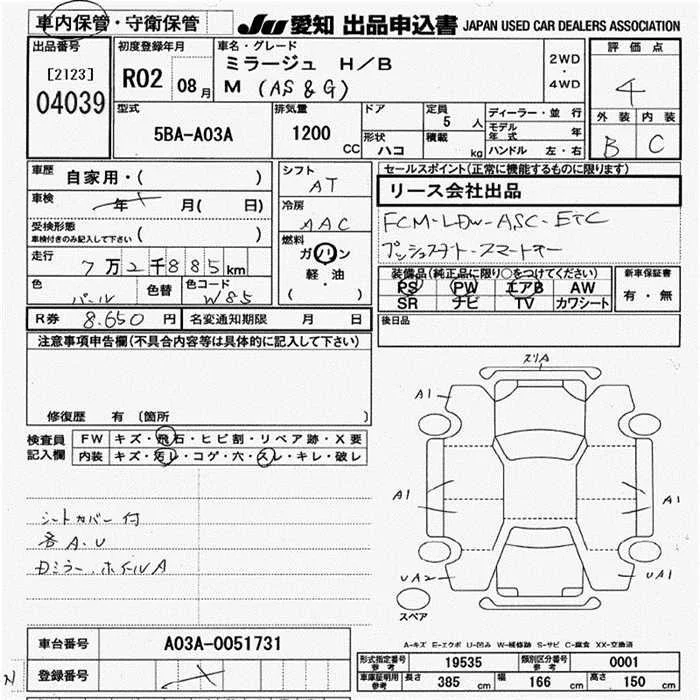 車内保管・守衛保管
JU 愛知 出品申込書 JAPAN USED CAR DEALERS ASSOCIATION
出品番号
[2123]
04039
初度登録年月
R02 08月
車名・グレード
ミラージュ H/B
M (AS&G)
2WD
・
4WD
評価点
4
外装 内装
B C
型式
5BA-A03A
排気量
1200 CC
ドア
形状 ハコ
定員 5 人
積載 kg
ディーラー・並行
モデル年式 年
ハンドル 左・右
車歴 自家用・( )
車検 年 月( 日)
受検形態
車検付きのみ記入して下さい ( )
走行 7万2千885km
色 パール 色替 色コード W85
シフト
AT
冷房
AAC
燃料
ガソリン
軽・油
( ・ )
セールスポイント(正常に機能するものに限ります)
リース会社出品
FCM-LDW-ASC-ETC
プッシュスタート-スマートキー
装備品(純正品に限り○をつけてください)
PS PW エアB AW
SR ナビ TV カワシート
新車保証書
有・無
R券 8.650 円 名変通知期限 月 日
後日品
注意事項申告欄(不具合内容等は具体的に記入して下さい)
修復歴 有 〔箇所 〕
検査員記入欄
FW キズ・飛石・ヒビ割・リペア跡・X要
内装 キズ・汚レ・コゲ・穴・スレ・キレ・破レ
シートカバー付
各A.U
Dミラー.ホイルA
スリA
A1
A1
A1
UA2
UA1
スペア
A-キズ E-エクボ U-凹み W-補修跡 S-サビ C-腐食 XX-交換済
車台番号 A03A-0051731
登録番号
N
形式指定番号参考 19535 類別区分番号参考 0001
車庫証明用参考 長さ 385 cm 幅 166 cm 高さ 150 cm